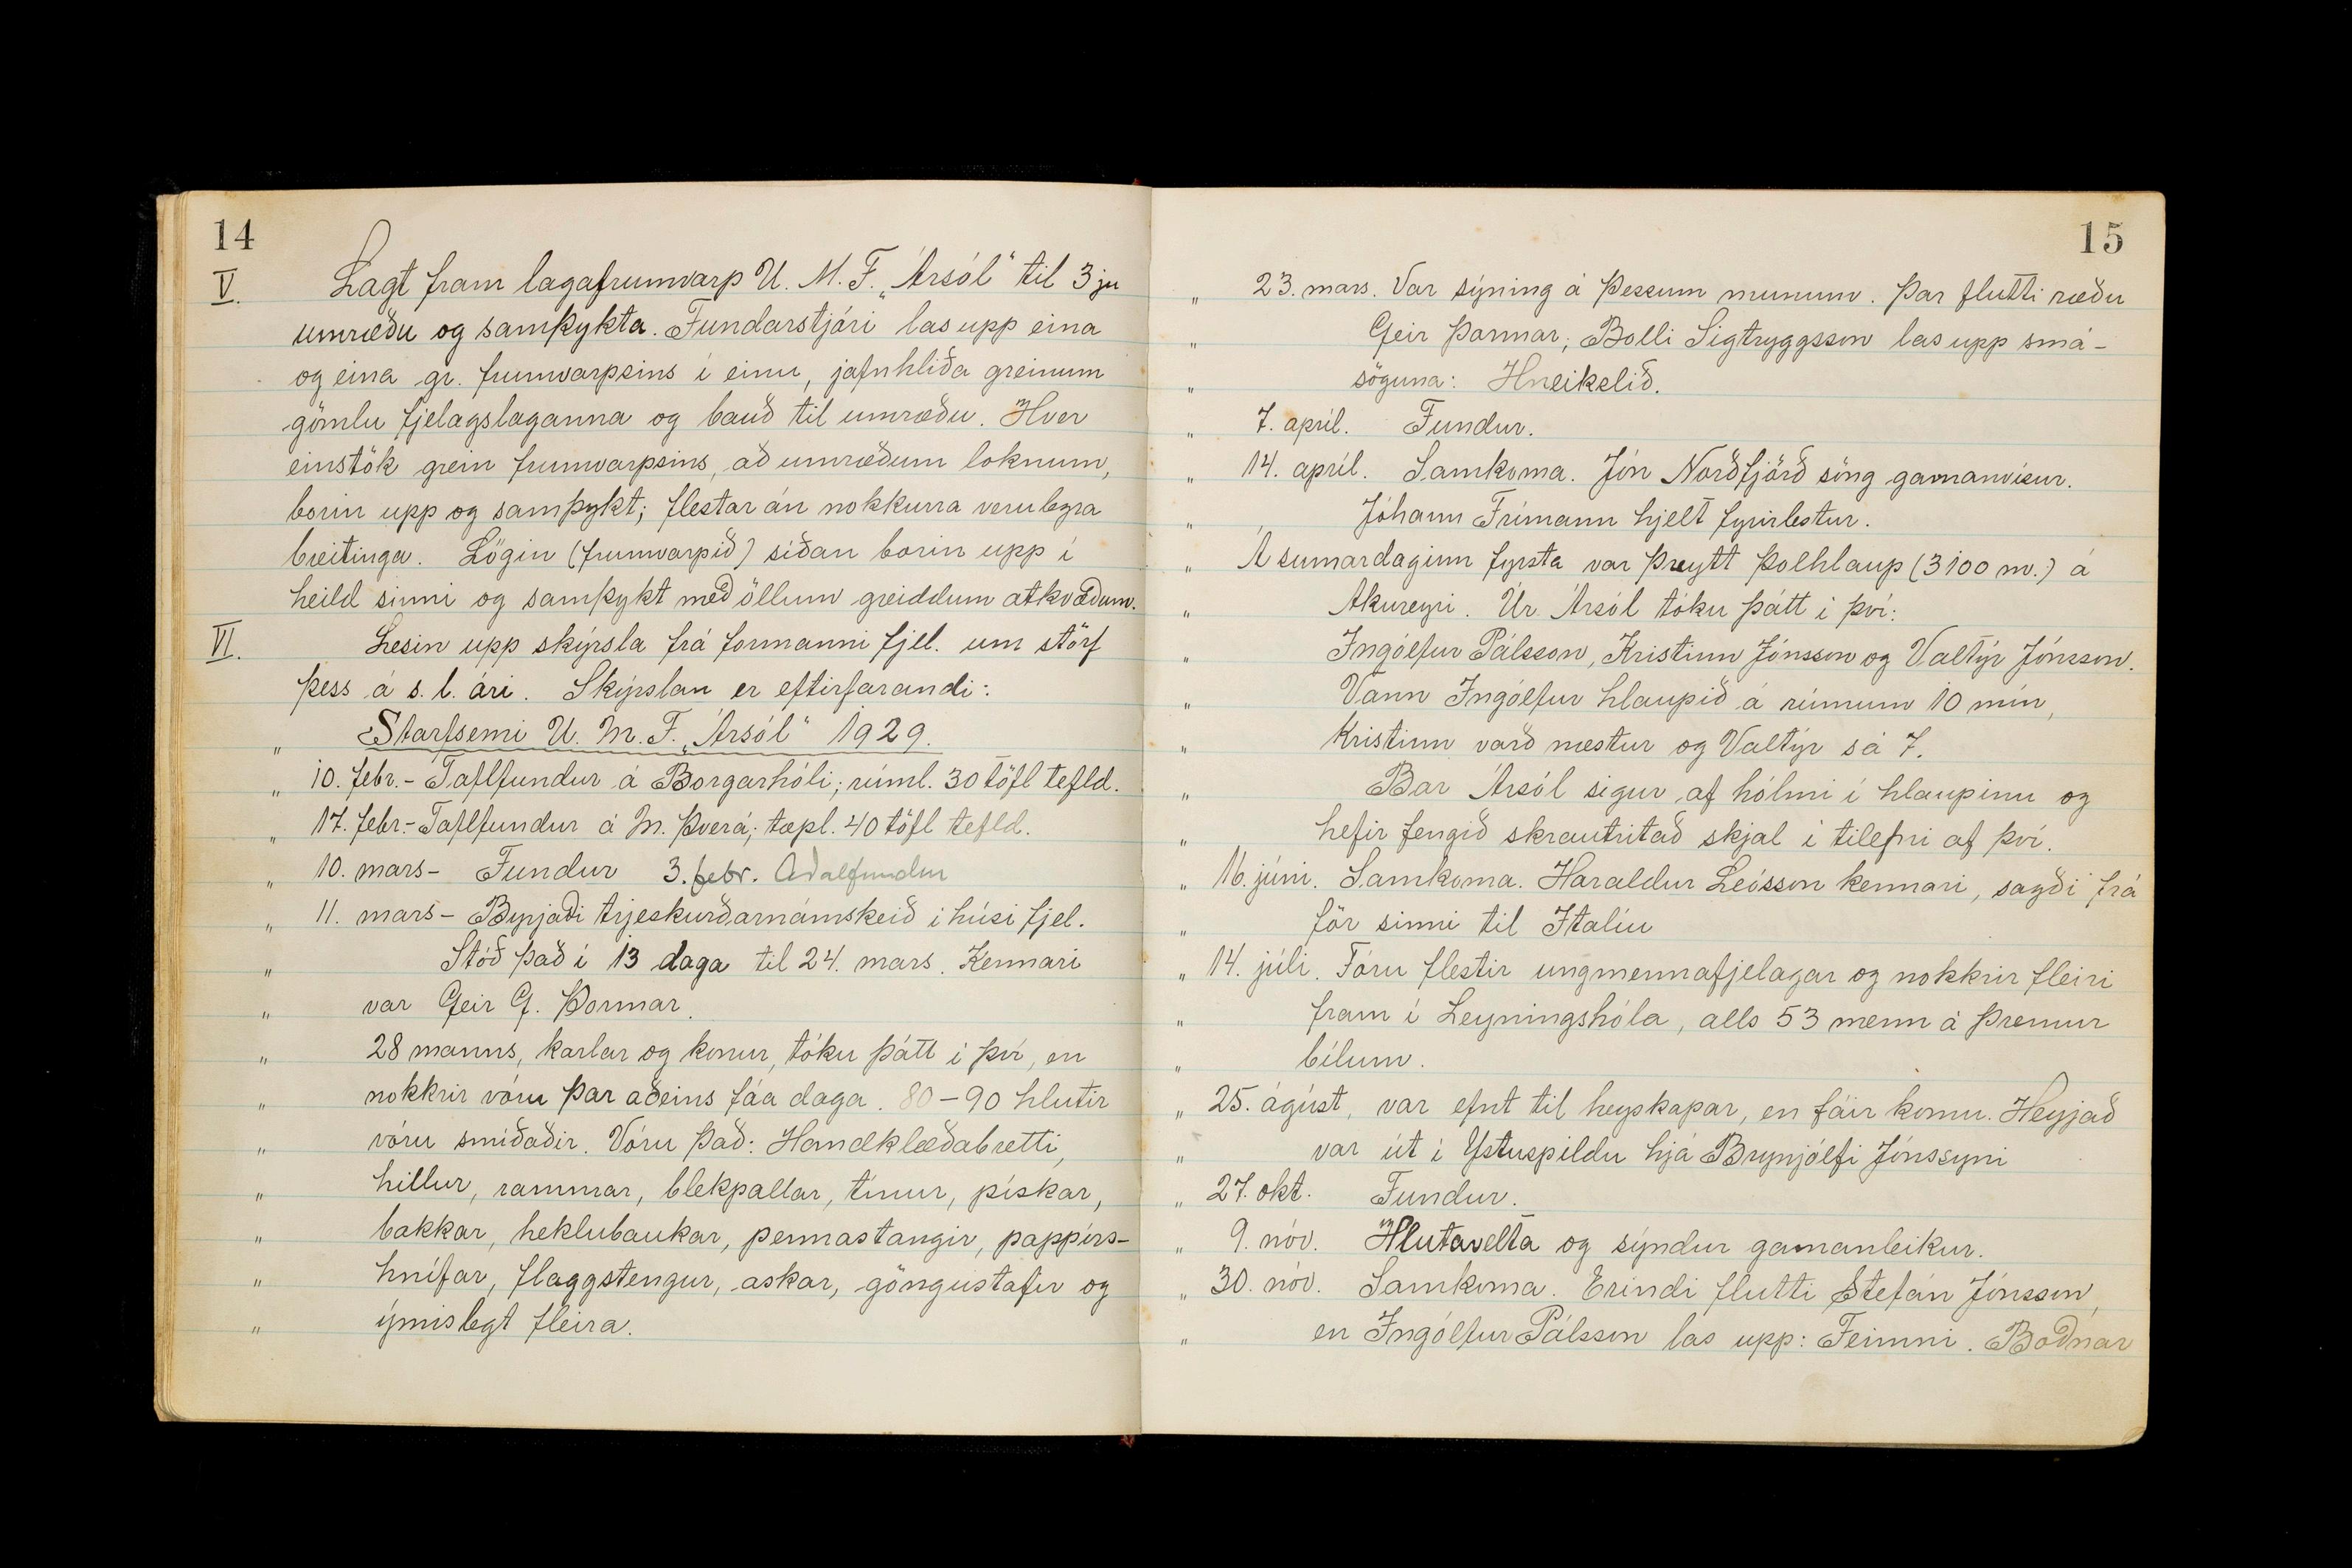 14
V. Lagt fram lagafrumvarp U. M. F. „Ársól" til 3ju
umræðu og samþykta. Fundarstjóri las upp eina
og eina gr. frumvarpsins í einu, jafnhliða greinum
gömlu fjelagslaganna og bauð til umræðu. Hver
einstök grein frumvarpsins, að umræðum loknum,
borin upp og samþykt; flestar án nokkurra verulegra
breitinga. Lögin (frumvarpið) síðan borin upp í
heild sinni og samþykt með öllum greiddum atkvæðum.
VI. Lesin upp skýrsla frá formanni fjel. um störf
þess á s. l. ári. Skýrslan er eftirfarandi:
„ Starfsemi U. M. F. „Ársól" 1929.
„ 10. febr. - Taflfundur á Borgarhóli; rúml. 30 töfl tefld.
„ 17. febr. - Taflfundur á M. Þverá; tæpl. 40 töfl tefld.
„ 10. mars - Fundur 3. febr. Aðalfundur
„ 11. mars - Byrjaði trjeskurðarnámskeið í húsi fjel.
„ Stóð það í 13 daga til 24. mars. Kennari
„ var Geir G. Þormar.
„ 28 manns, karlar og konur, tóku þátt í því, en
„ nokkrir vóru þar aðeins fáa daga. 80-90 hlutir
„ vóru smíðaðir. Vóru það: Handklæðabretti,
„ hillur, rammar, blekpallar, tínur, pískar,
„ bakkar, heklubaukar, pennastangir, pappírs-
„ hnífar, flaggstengur, askar, göngustafir og
„ ýmislegt fleira.
15
„ 23. mars. Var sýning á þessum munum. Þar flutti ræðu
„ Geir Þormar; Bolli Sigtryggsson las upp smá-
„ söguna: Hneikslið.
„ 7. apríl. Fundur.
„ 14. apríl. Samkoma. Jón Norðfjörð söng gamanvísur.
„ Jóhann Frímann hjelt fyrirlestur.
„ Á sumardaginn fyrsta var þreytt þolhlaup (3100 m.) á
„ Akureyri. Úr Ársól tóku þátt í því:
„ Ingólfur Pálsson, Kristinn Jónsson og Valtýr Jónsson.
„ Vann Ingólfur hlaupið á rúmum 10 mín,
„ Kristinn varð næstur og Valtýr sá 7.
„ Bar Ársól sigur af hólmi í hlaupinu og
„ hefir fengið skrautritað skjal í tilefni af því.
„ 16. júní. Samkoma. Haraldur Leósson kennari, sagði frá
„ för sinni til Ítalíu
„ 14. júlí. Fóru flestir ungmennafjelagar og nokkrir fleiri
„ fram í Leyningshóla, alls 53 menn á þremur
„ bílum.
„ 25. ágúst, var efnt til heyskapar, en fáir komu. Heyjað
„ var út í Ystuspildu hjá Brynjólfi Jónssyni
„ 27. okt. Fundur.
„ 9. nóv. Hlutavelta og sýndur gamanleikur.
„ 30. nóv. Samkoma. Erindi flutti Stefán Jónsson,
„ en Ingólfur Pálsson las upp: Feimni. Boðnar